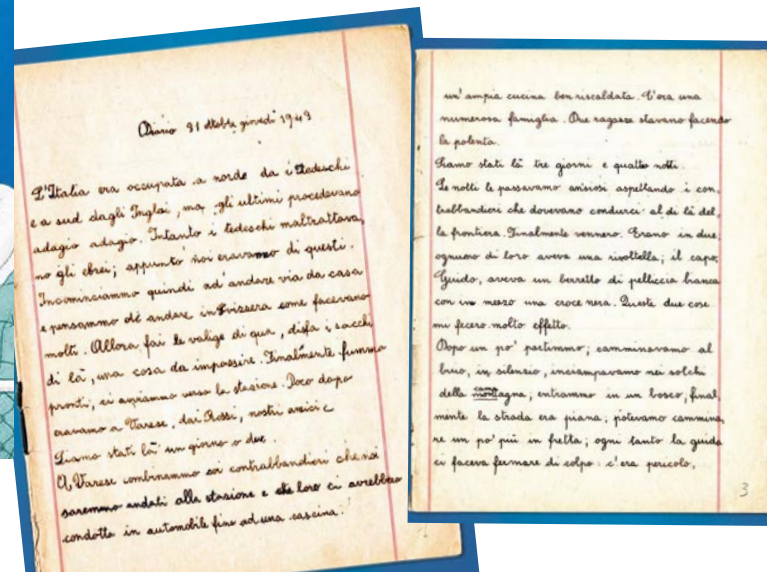 Diario 31 ottobre giovedì 1943
L'Italia era occupata a norde da i Tedeschi
e a sud dagli Inglai, ma gli ultimi procedevano
adagio adagio. Intanto i tedeschi maltrattava,
no gli ebrei; appunto noi eravamo di questi.
Incominciammo quindi ad'andare via da casa
e pensammo di andare in Svizzera come facevano
molti. Allora fai le valige di qua, disfa i sacchi
di là, una cosa da impazzire. Finalmente fummo
pronti, ci avviammo verso la stazione. Poco dopo
eravamo a Varese, dai Rossi, nostri amici e
siamo stati là un giorno o due.
A Varese combinammo coi contrabbandieri che noi
saremmo andati alla stazione e che loro ci avrebbero
condotto in automobile fino ad una cascina.
un'ampia cucina ben riscaldata. C'era una
numerosa famiglia. Due ragazze stavano facendo
la polenta.
Siamo stati là tre giorni e quattro notti.
Le notti le passavamo ansiosi aspettando i con,
trabbandieri che dovevano condurci al di là del,
la frontiera. Finalmente vennero. Erano in due;
ognuno di loro aveva una rivoltella; il capo,
Guido, aveva un berretto di pelliccia bianca
con in mezzo una croce nera. Queste due cose
mi fecero molto effetto.
Dopo un po' partimmo; camminavamo al
buio, in silenzio, inciampavamo nei solchi
della campagna, entrammo in un bosco, final,
mente la strada era piana; potevamo cammina,
re un po' più in fretta; ogni tanto la guida
ci faceva fermare di colpo: c'era pericolo,
3